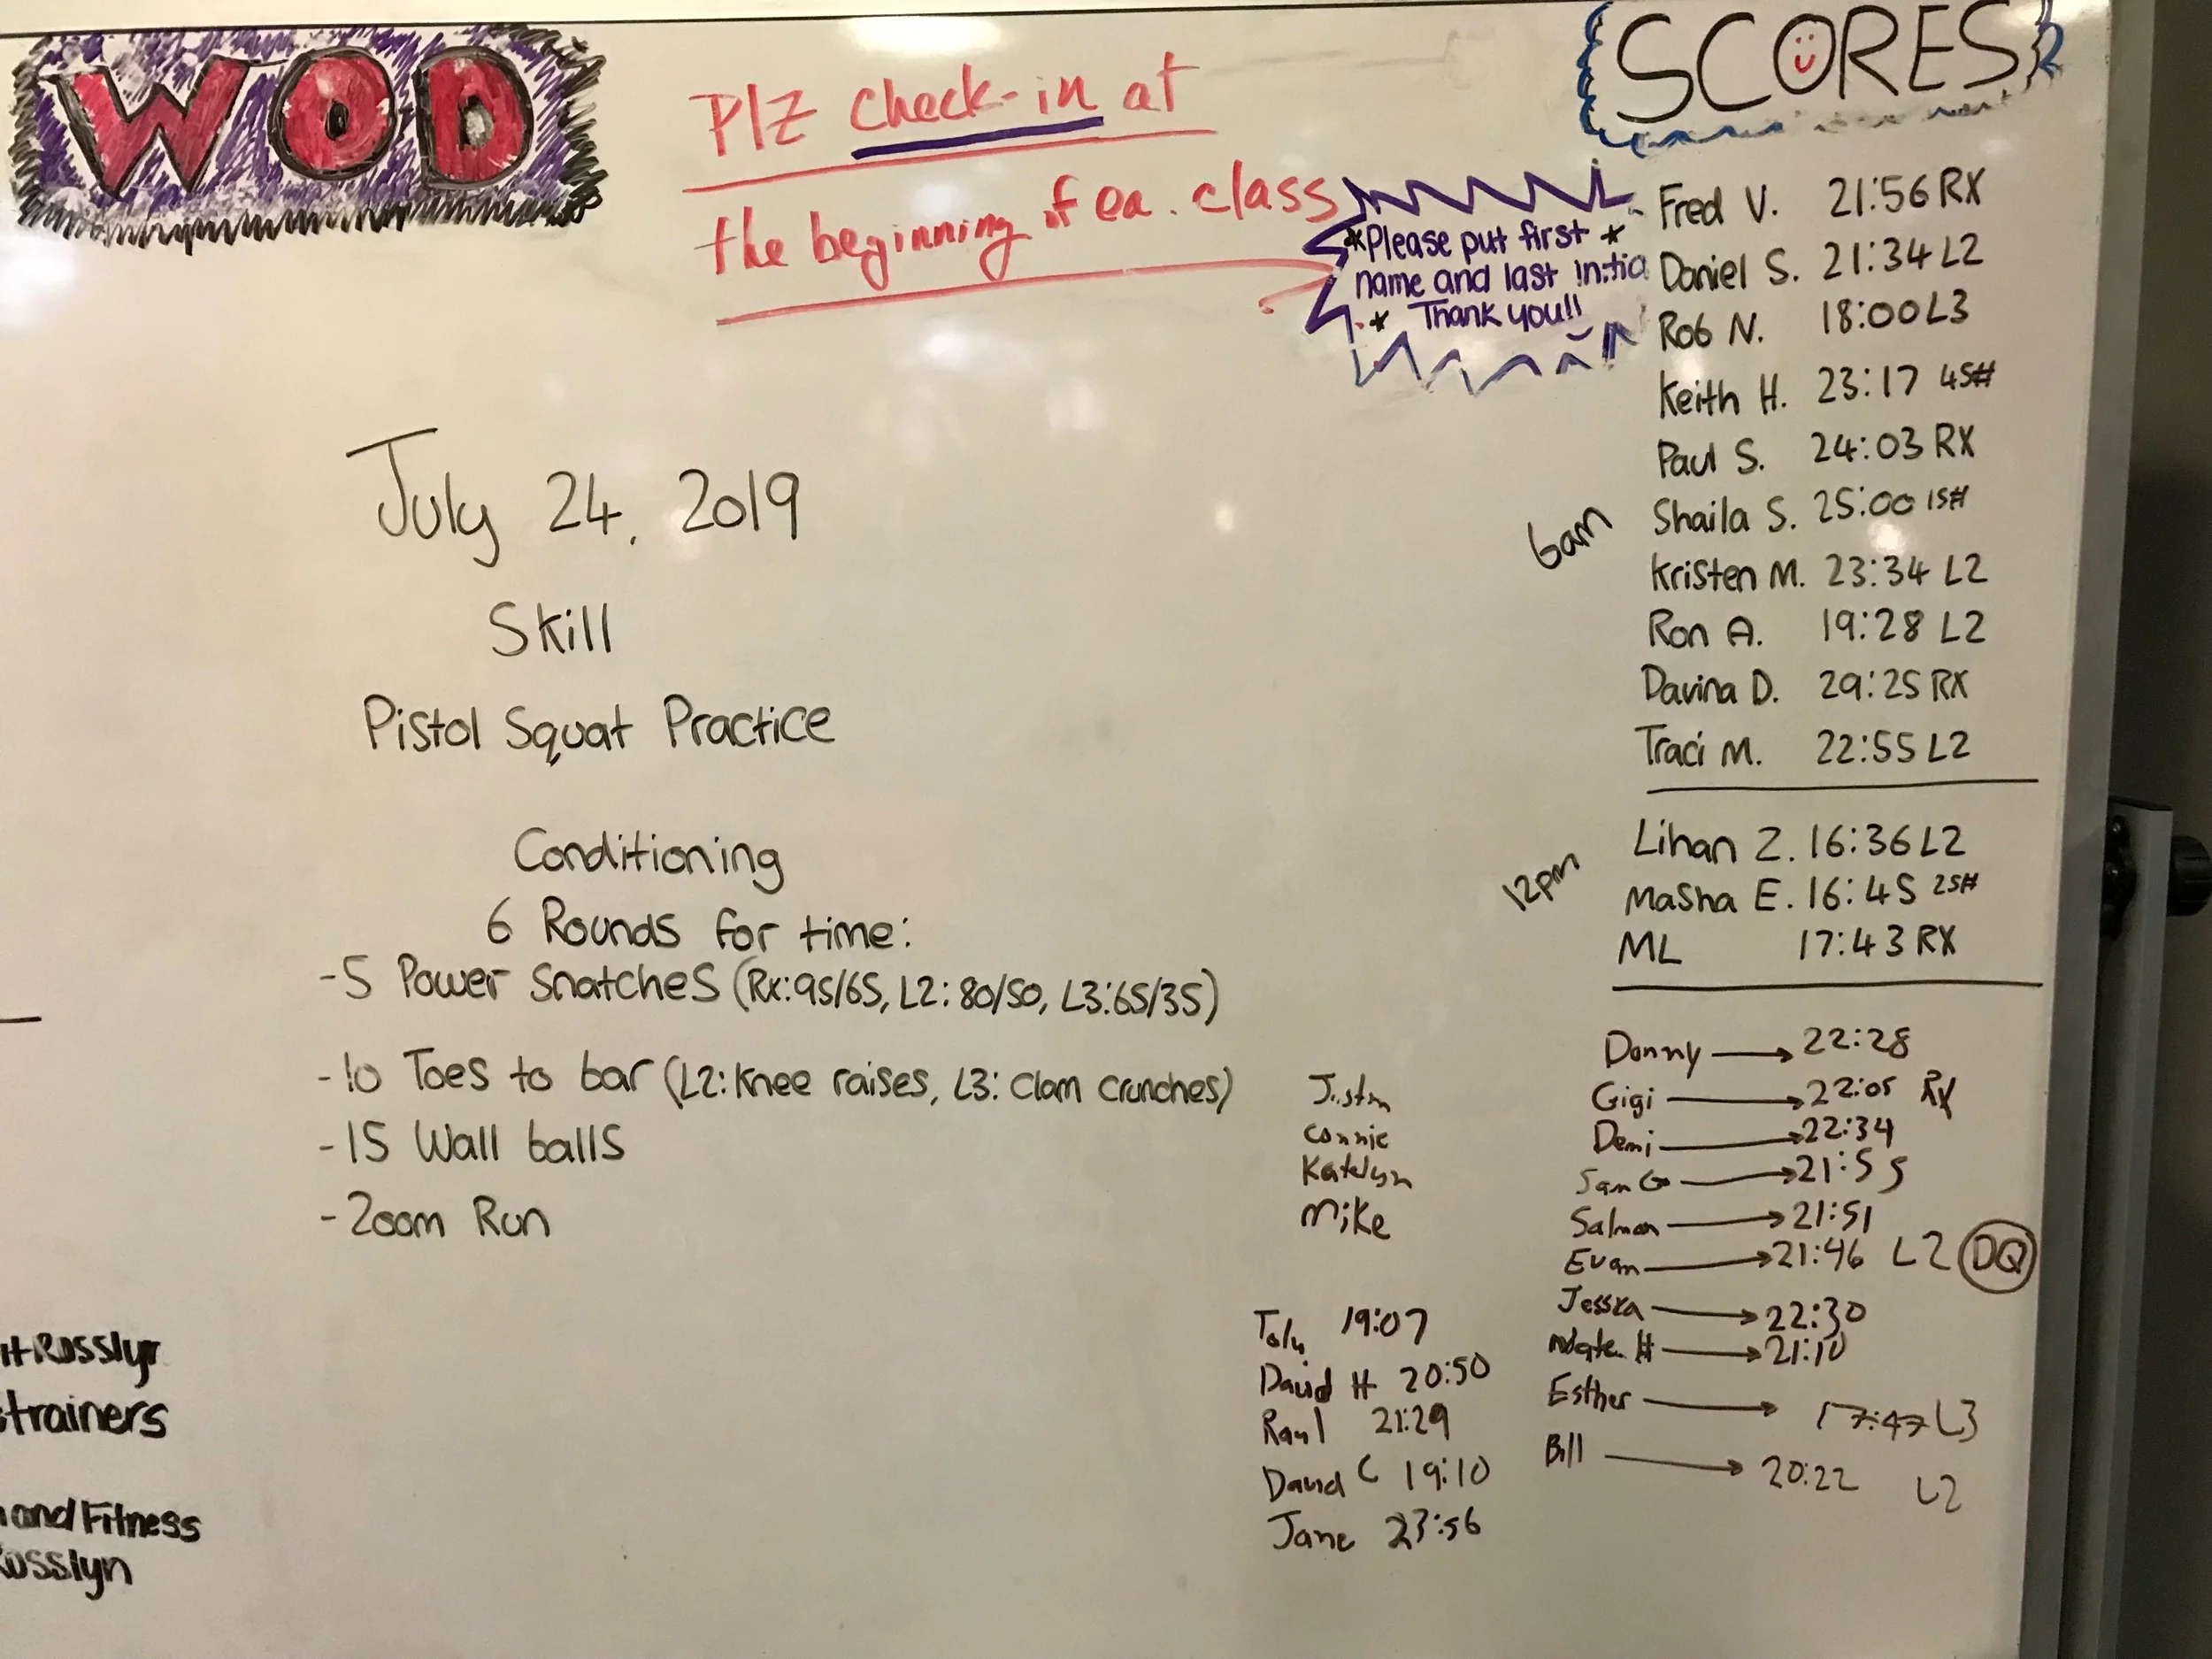 WOD
Plz check-in at
the beginning of ea. class
SCORES
*Please put first *
name and last initia
* Thank you!!
July 24, 2019
Skill
Pistol Squat Practice
Conditioning
6 Rounds for time:
-5 Power Snatches (Rx:95/65, L2: 80/50, L3:65/35)
-10 Toes to bar (L2: Knee raises, L3: Clam crunches)
-15 Wall balls
-200m Run
Fred V. 21:56 RX
Daniel S. 21:34 L2
Rob N. 18:00 L3
Keith H. 23:17 45#
Paul S. 24:03 RX
6am
Shaila S. 25:00 15#
Kristen M. 23:34 L2
Ron A. 19:28 L2
Davina D. 29:25 RX
Traci M. 22:55 L2
12pm
Lihan Z. 16:36 L2
Masha E. 16:45 25#
ML 17:43 RX
Donny 22:28
Gigi 22:05 RX
Demi 22:34
Sam G 21:55
Salman 21:51
Evan 21:46 L2 DQ
Jessica 22:30
H 21:10
Esther 17:47 L3
Bill 20:22 L2
Justin
Connie
Katelyn
Mike
19:07
David H 20:50
Raul 21:29
David C 19:10
Jane 23:56
it Rosslyn
trainers
and Fitness
Rosslyn